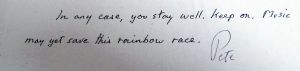 In any case, you stay well. Keep on. Music
may yet save this rainbow race.
Pete